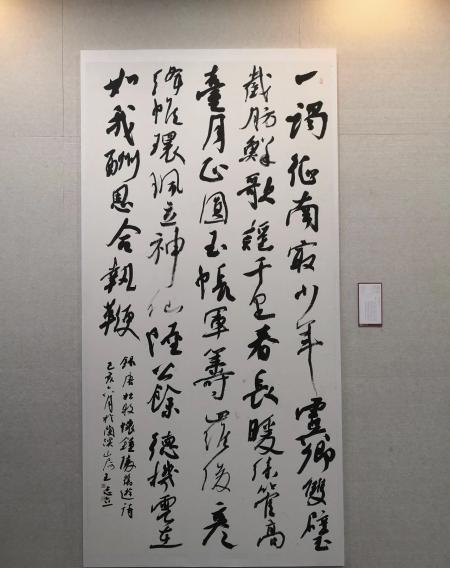 一謁征南冣少年虞卿雙璧
截肪鮮歌謡千里春長暖絲管高
臺月正圓玉帳軍籌羅俊彥
絳帷環珮立神仙陸公餘德機雲在
如我酬恩合執鞭
錄唐杜牧懷鍾陵舊遊詩
己亥六月於溪山房王志立